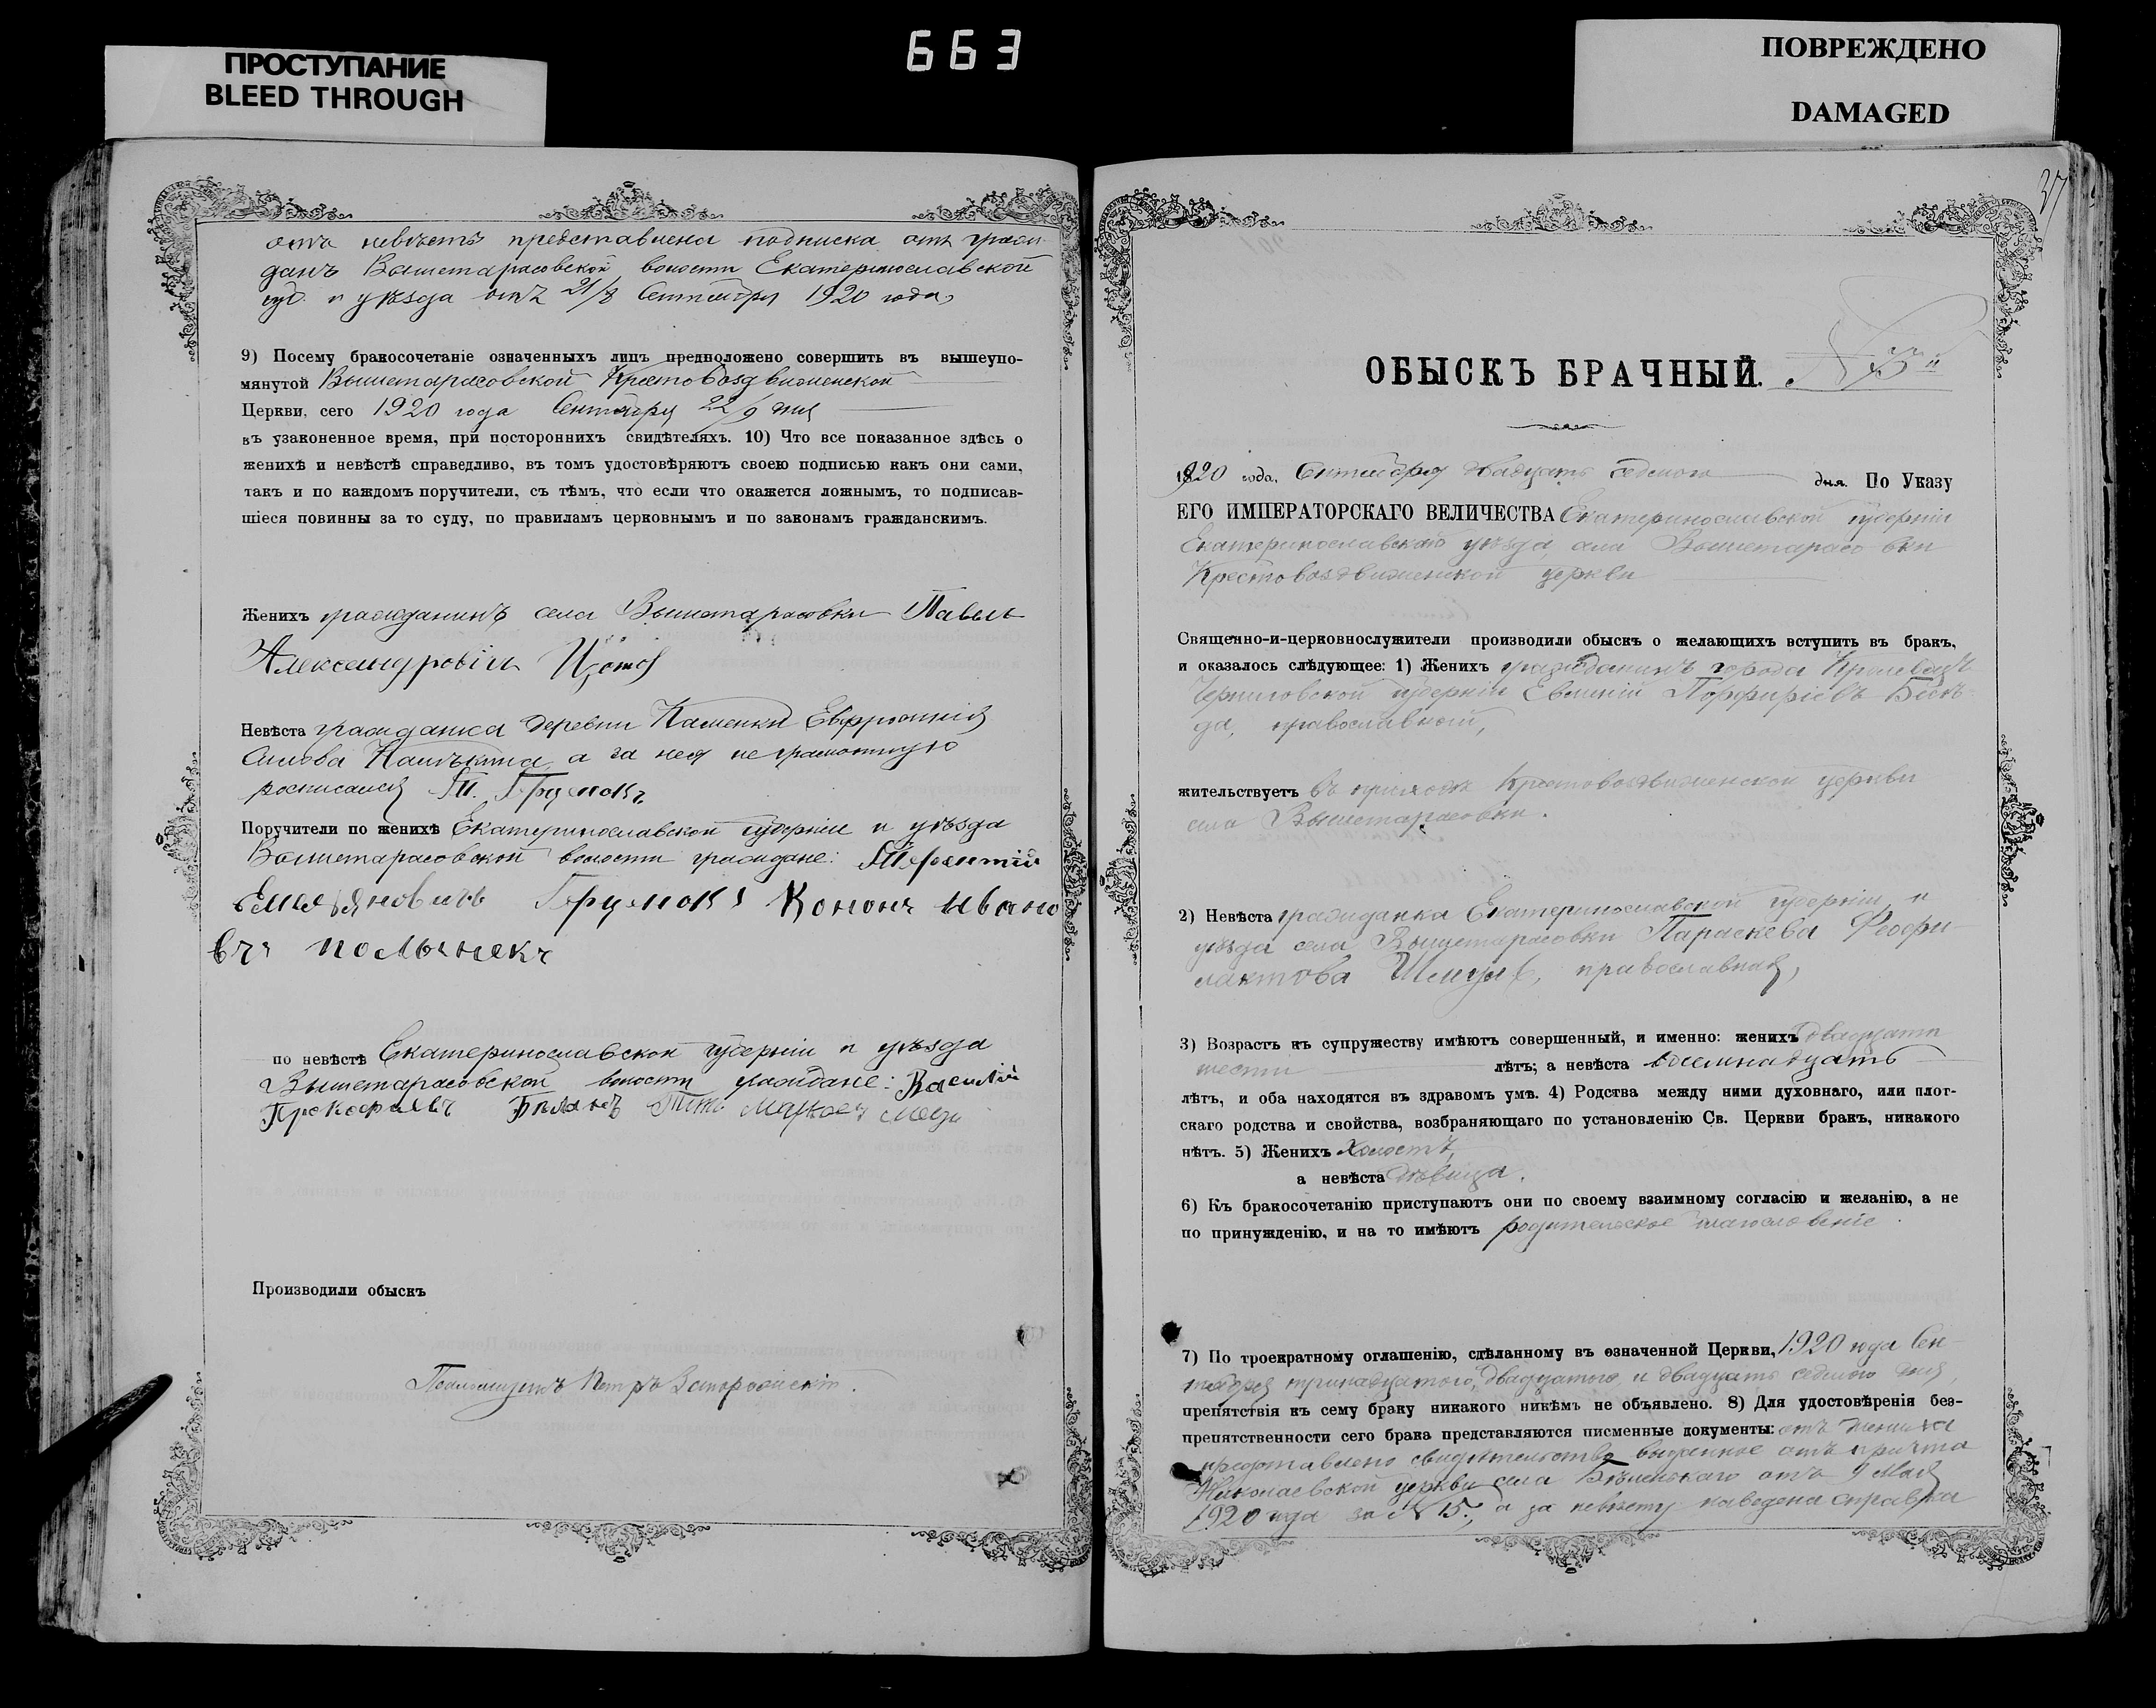 663
ПРОСТУПАНИЕ
BLEED THROUGH
ПОВРЕЖДЕНО
DAMAGED
отъ невѣсты представлена подписка отъ граж-
данъ Вышетарасовской волости Екатеринославской
губ. и уѣзда отъ 21/8 Сентября 1920 года,
9) Посему бракосочетаніе означенныхъ лицъ предположено совершить въ вышеупо-
мянутой Вышетарасовской Крестовоздвиженской
Церкви, сего 1920 года Сентября 22/9 дня
въ узаконенное время, при постороннихъ свидѣтеляхъ. 10) Что все показанное здѣсь о
женихѣ и невѣстѣ справедливо, въ томъ удостовѣряютъ своею подписью какъ они сами,
такъ и по каждомъ поручители, съ тѣмъ, что если что окажется ложнымъ, то подписав-
шіеся повинны за то суду, по правиламъ церковнымъ и по законамъ гражданскимъ.
Женихъ гражданинъ села Вышетарасовки Павелъ
Александровичъ
Невѣста гражданка деревни Каменки Евфросинія
а за нея неграмотную
росписался
Поручители по женихѣ Екатеринославской губерніи и уѣзда
Вышетарасовской волости граждане: Терентій
Емельяновичъ Кононъ Ивано
въ
по невѣстѣ Екатеринославской губерніи и уѣзда
Вышетарасовской волости граждане: Василій
Прокофьевъ
Производили обыскъ
Псаломщикъ Петръ
37
ОБЫСКЪ БРАЧНЫЙ.
1920 года, Сентября двадцать седьмого дня. По Указу
ЕГО ИМПЕРАТОРСКАГО ВЕЛИЧЕСТВА Екатеринославской губерніи
Екатеринославскаго уѣзда, села Вышетарасовки
Крестовоздвиженской церкви
Священно-и-церковнослужители производили обыскъ о желающихъ вступить въ бракъ,
и оказалось слѣдующее: 1) Женихъ гражданинъ города Кролевца
Черниговской губерніи Евгеній Порфиріевъ
православный,
жительствуетъ въ приходѣ Крестовоздвиженской церкви
села Вышетарасовки.
2) Невѣста гражданка Екатеринославской губерніи и
уѣзда села Вышетарасовки Параскева Феофи-
лактова православная,
3) Возрастъ къ супружеству имѣютъ совершенный, и именно: женихъ двадцати
шести лѣтъ; а невѣста восемнадцать
лѣтъ, и оба находятся въ здравомъ умѣ. 4) Родства между ними духовнаго, или плот-
скаго родства и свойства, возбраняющаго по установленію Св. Церкви бракъ, никакого
нѣтъ. 5) Женихъ холостъ,
а невѣста дѣвица.
6) Къ бракосочетанію приступаютъ они по своему взаимному согласію и желанію, а не
по принужденію, и на то имѣютъ родительское благословеніе.
7) По троекратному оглашенію, сдѣланному въ означенной Церкви, 1920 года Сен-
тября тринадцатого, двадцатого и двадцать седьмого дня,
препятствія къ сему браку никакого никѣмъ не объявлено. 8) Для удостовѣренія без-
препятственности сего брака представляются писменные документы: отъ жениха
представлено свидѣтельство выданное отъ причта
Николаевской церкви села Бѣленькаго отъ 9 Мая
1920 года за № 15., а за невѣсту наведена справка